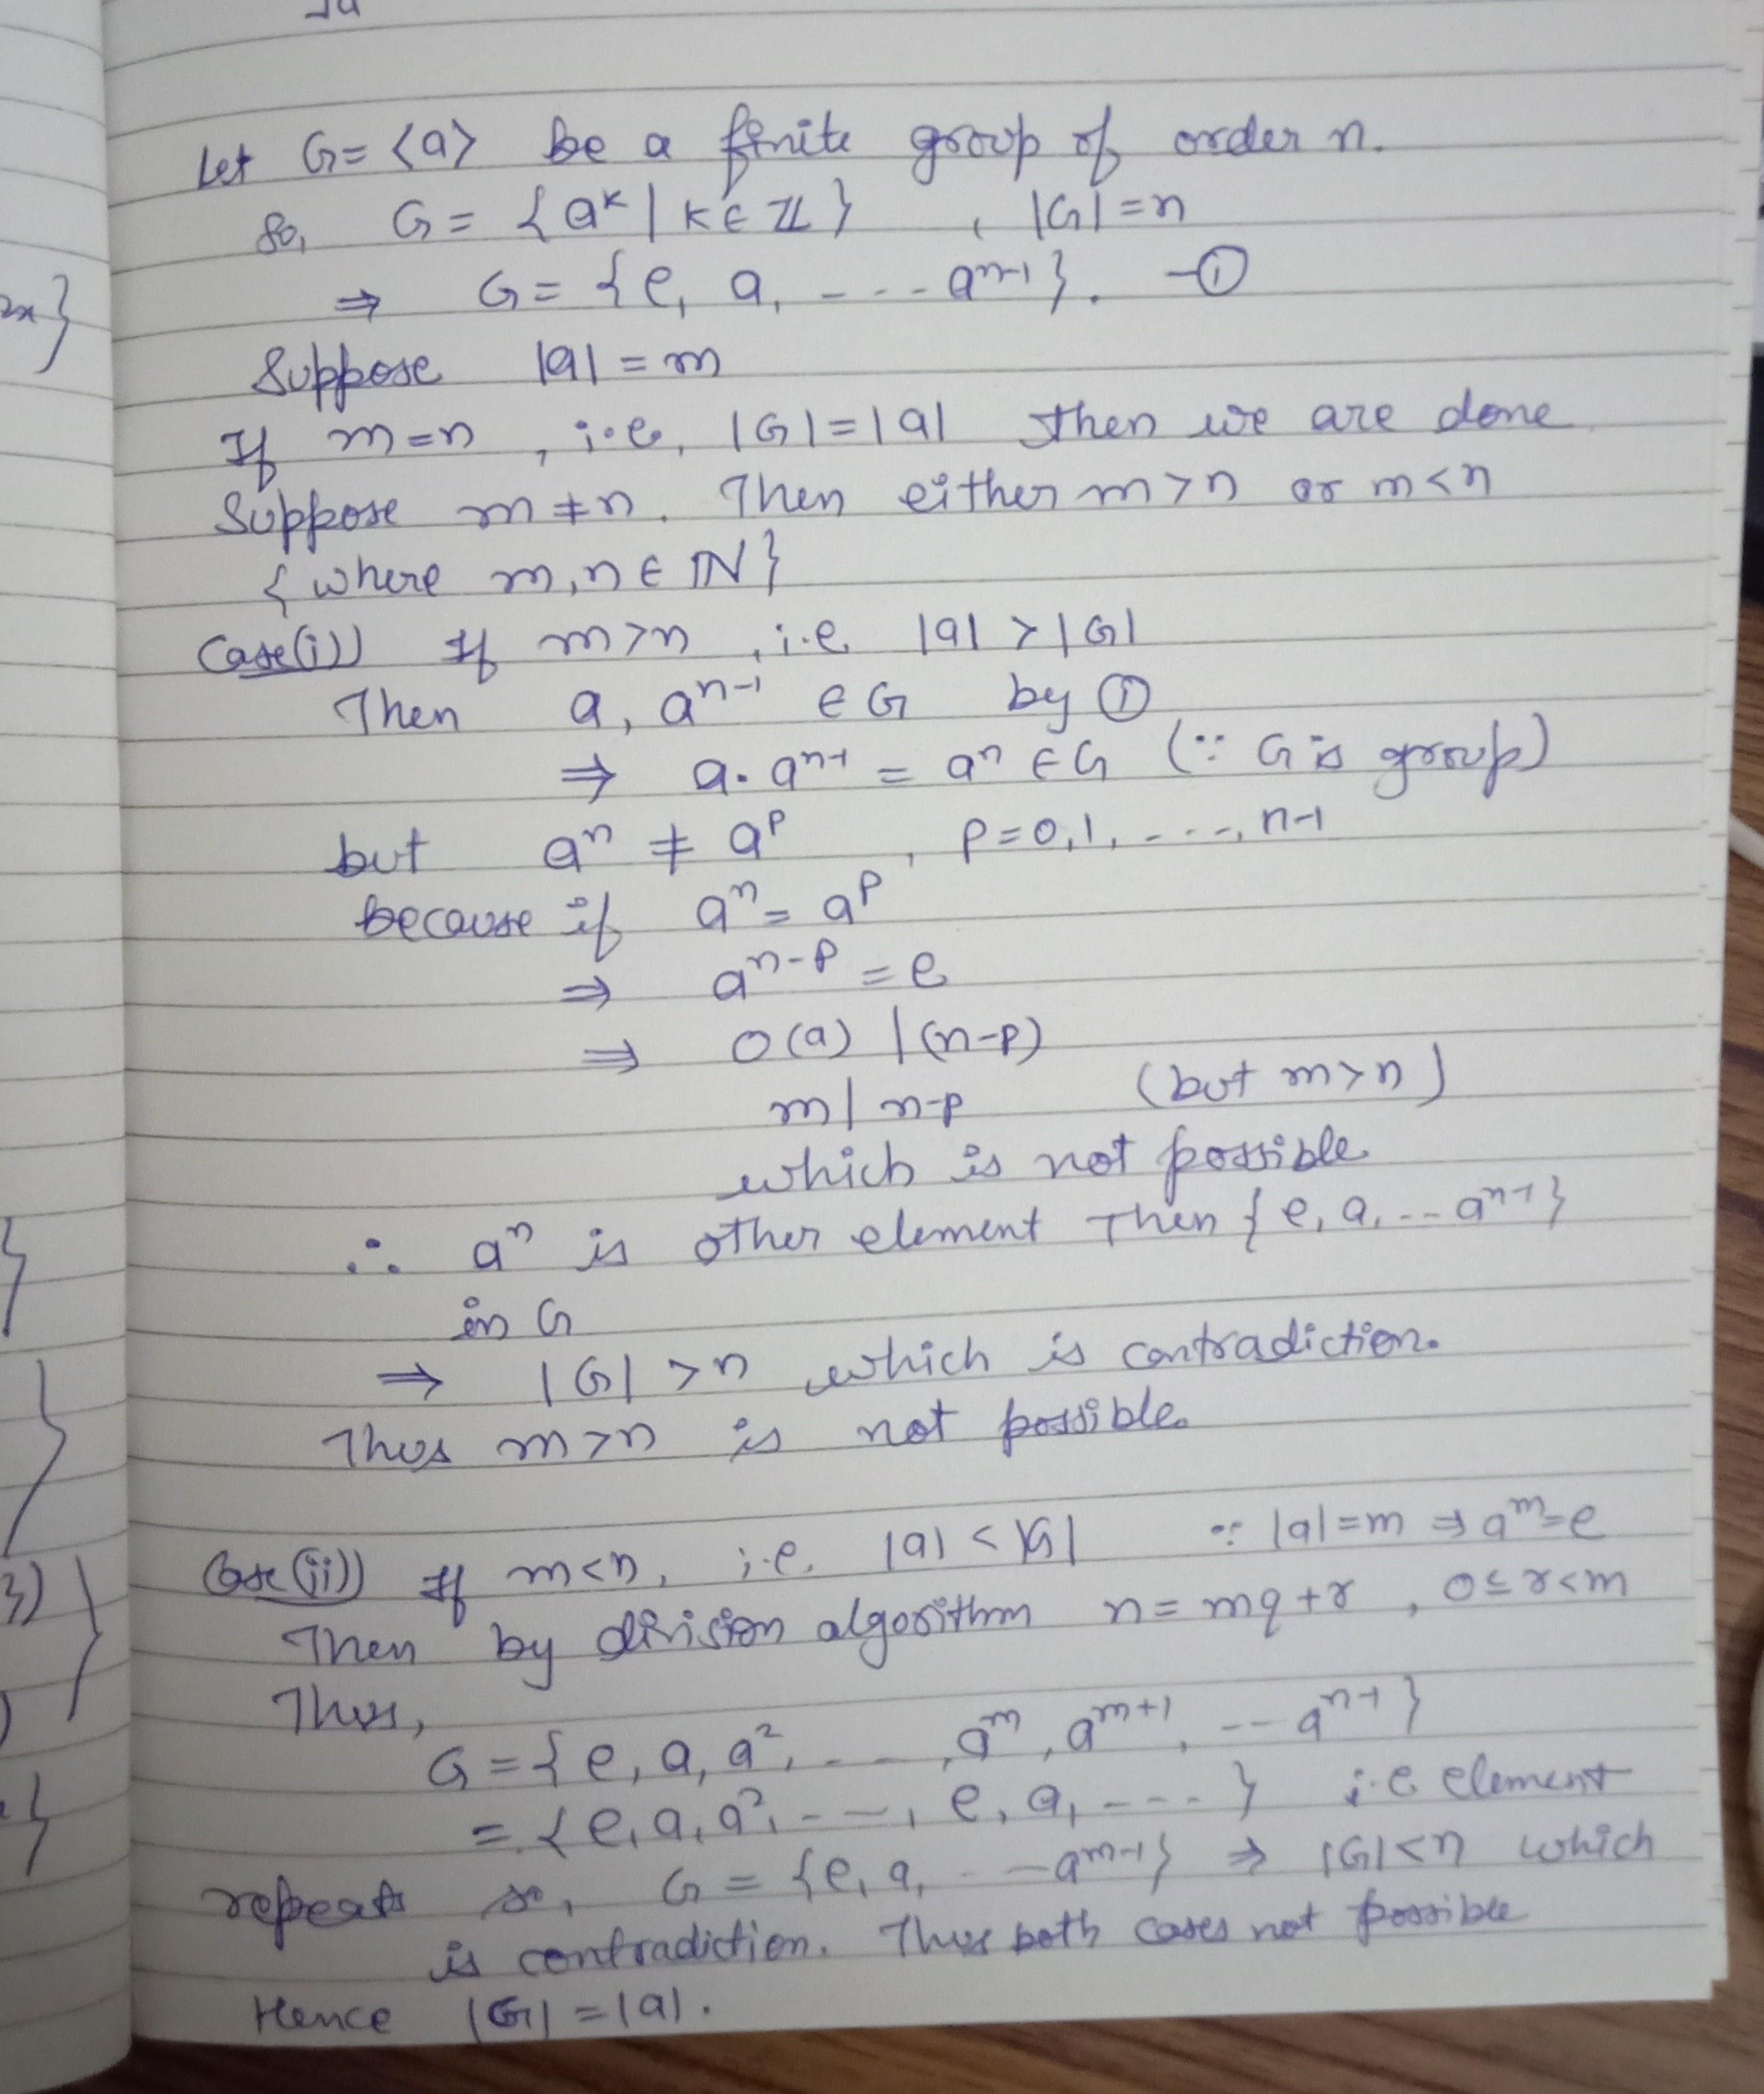 Let G = <a> be a finite group of order n.
So, G = {aᵏ | k ∈ ℤ} , |G| = n
⇒ G = {e, a, - - - aⁿ⁻¹}. —①
Suppose |a| = m
If m = n , i.e, |G| = |a| then we are done
Suppose m ≠ n. Then either m > n or m < n
{where m, n ∈ ℕ}
Case(i)) If m > n , i.e |a| > |G|
Then a, aⁿ⁻¹ ∈ G by ①
⇒ a. aⁿ⁻¹ = aⁿ ∈ G (∵ G is group)
but aⁿ ≠ aᵖ , p = 0, 1, - - -, n-1
because if aⁿ = aᵖ
⇒ aⁿ⁻ᵖ = e
⇒ O(a) | (n-p)
m | n-p (but m > n)
which is not possible.
∴ aⁿ is other element Then {e, a, -- aⁿ⁻¹}
in G
⇒ |G| > n which is contradiction.
Thus m > n is not possible.
Case(ii)) If m < n, i.e. |a| < |G| ∵ |a| = m ⇒ aᵐ = e
Then by division algorithm n = mq + r , 0 ≤ r < m
Thus,
G = {e, a, a², - - - , aᵐ, aᵐ⁺¹, -- aⁿ⁻¹}
= {e, a, a², - - -, e, a, - - - } i.e element
repeats so, G = {e, a, - - aᵐ⁻¹} ⇒ |G| < n which
is contradiction. Thus both cases not possible
Hence |G| = |a|.